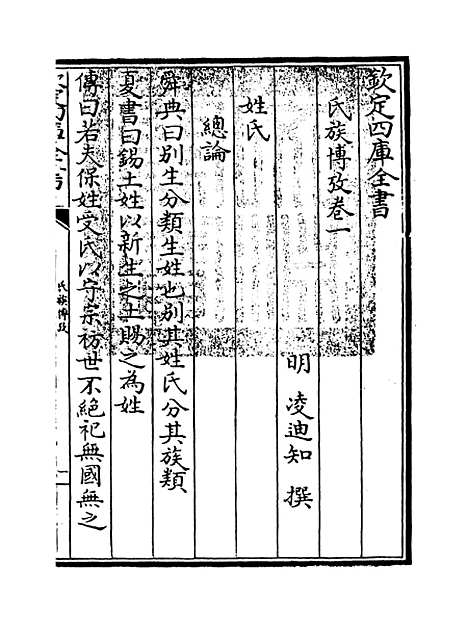 欽定四庫全書
氏族博攷卷一
明 凌迪知 撰
姓氏
總論
舜典曰別生分類生姓也別其姓氏分其族類
夏書曰錫土姓以所生之土賜之為姓
傳曰若夫保姓受氏以守宗祊世不絕祀無國無之
氏族博攷